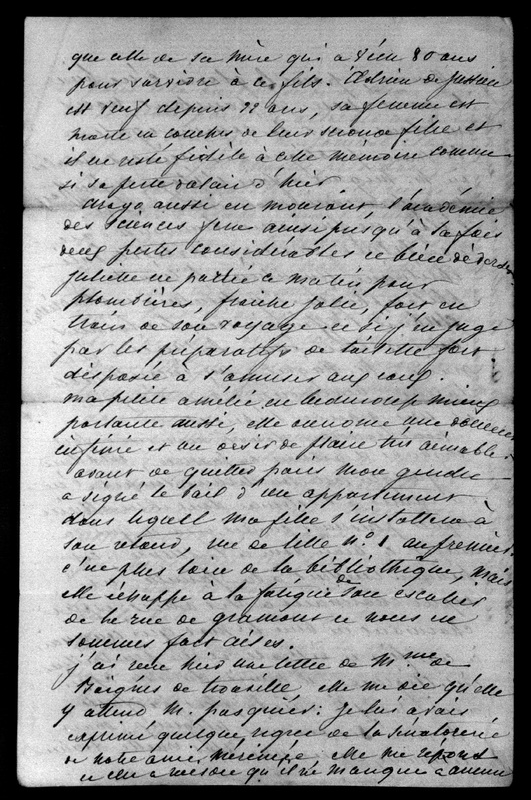 que celle de sa mère qui a vécu 80 ans
pour survivre à ce fils. Adrien de Jussieu
est veuf depuis 22 ans, sa femme est
morte en couches de leur seconde fille et
il est resté fidèle à cette mémoire comme
si sa perte datait d'hier.
Arago aussi en mourant, l'académie
des sciences fera ainsi jusqu'à la fois
deux pertes considérables
Juliette est partie ce matin pour
plombières, fraiche jolie, fort en
train de son voyage et si j'en juge
par les préparatifs de toilette fort
disposée à s'amuser
ma petite amélie est beaucoup mieux
portante aussi, elle a une douceur
infinie et un désir de plaire très aimable.
avant de quitter paris mon gendre
a signé le bail d'un appartement
dans lequel ma fille s'installera à
son retour, rue de lille n° 1 au premier.
c'est plus loin de la bibliothèque, mais
elle échappe à la fatigue de son escalier
de la rue de gramont et nous en
sommes fort aises.
j'ai reçu hier une lettre de Mme de
Boignes de trouville, elle me dit qu'elle
y attend M. pasquier. je lui avais
exprimé quelque regret de la
de notre ami mérimée. elle me répond
qu'il ne manque à